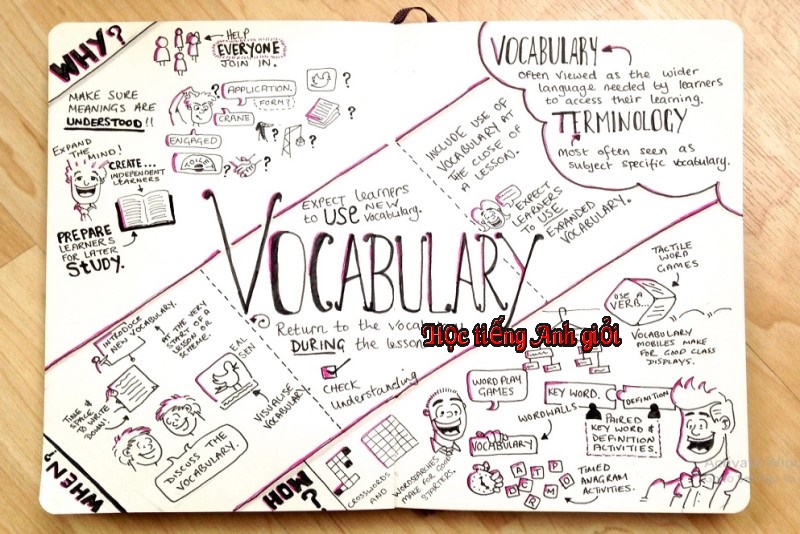 WHY?
HELP
EVERYONE
JOIN IN.
MAKE SURE
MEANINGS ARE
UNDERSTOOD!!
APPLICATION.
FORM?
CRANE
ENGAGED
TOILET
EXPAND
THE MIND!
CREATE...
INDEPENDENT
LEARNERS
PREPARE
LEARNERS
FOR LATER
STUDY.
VOCABULARY
OFTEN VIEWED AS THE WIDER
LANGUAGE NEEDED BY LEARNERS
TO ACCESS THEIR LEARNING.
TERMINOLOGY
MOST OFTEN SEEN AS
SUBJECT SPECIFIC VOCABULARY.
INCLUDE USE OF
VOCABULARY AT
THE CLOSE OF
A LESSON.
EXPECT
LEARNERS
TO USE
EXPANDED
VOCABULARY.
EXPECT learners
to USE NEW
vocabulary.
VOCABULARY
Return to the vocab
DURING the lesson
Học tiếng Anh giỏi
CHECK
Understanding
INTRODUCE
NEW VOCABULARY.
AT THE VERY
START OF A
LESSON OR
SCHEME.
TIME &
SPACE
TO WRITE
DOWN!
EAL
SEN
VISUALISE
VOCABULARY
DISCUSS THE
VOCABULARY.
WHEN?
HOW?
CROSSWORDS
AND
WORDSEARCHES
MAKE FOR GOOD
STARTERS.
WORD PLAY
GAMES
WORDWALLS
VOCABULARY
TACTILE
WORD
GAMES
USE A
VERB...
VOCABULARY
MOBILES MAKE
FOR GOOD CLASS
DISPLAYS.
KEY WORD.
DEFINITION
PAIRED
KEY WORD &
DEFINITION
ACTIVITIES.
A T P
D C R M O
TIMED
ANAGRAM
ACTIVITIES.